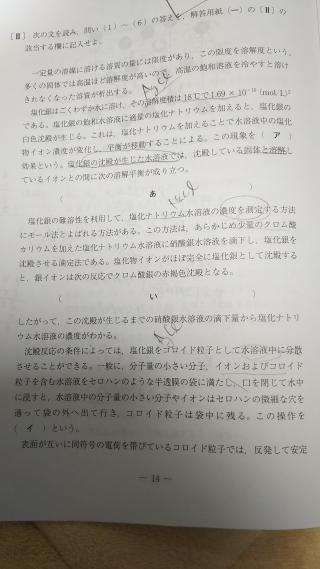 〔Ⅱ〕 次の文を読み,問い(1)~(6)の答えを,解答用紙(一)の〔Ⅱ〕の
該当する欄に記入せよ。
一定量の溶媒に溶ける溶質の量には限度があり,この限度を溶解度という。
多くの固体では高温ほど溶解度が高いので,高温の飽和溶液を冷やすと溶け
きれなくなった溶質が析出する。
AgCl
塩化銀はごくわずか水に溶け,その溶解度積は18℃で1.69×10⁻¹⁰(mol/L)²
である。塩化銀の飽和水溶液に適量の塩化ナトリウムを加えると,塩化銀の
白色沈殿が生じる。これは,塩化ナトリウムを加えることで水溶液中の塩化
物イオン濃度が変化し,平衡が移動することによる。この現象を(ア)
効果という。塩化銀の沈殿が生じた水溶液では,沈殿している固体と溶解し
ているイオンとの間に次の溶解平衡が成り立つ。
( あ )
NaCl
塩化銀の難溶性を利用して,塩化ナトリウム水溶液の濃度を測定する方法
にモール法とよばれる方法がある。この方法は,あらかじめ少量のクロム酸
カリウムを加えた塩化ナトリウム水溶液に硝酸銀水溶液を滴下し,塩化銀を
沈殿させる滴定法である。塩化物イオンがほぼ完全に塩化銀として沈殿する
と,銀イオンは次の反応でクロム酸銀の赤褐色沈殿となる。
( い )
したがって,この沈殿が生じるまでの硝酸銀水溶液の滴下量から塩化ナトリ
ウム水溶液の濃度がわかる。
AgCl
沈殿反応の条件によっては,塩化銀をコロイド粒子として水溶液中に分散
させることができる。一般に,分子量の小さい分子,イオンおよびコロイド
粒子を含む水溶液をセロハンのような半透膜の袋に満たし,口を閉じて水中
に浸すと,水溶液中の分子量の小さい分子やイオンはセロハンの微細な穴を
通って袋の外へ出て行き,コロイド粒子は袋中に残る。この操作を
(イ)という。
表面が互いに同符号の電荷を帯びているコロイド粒子では,反発して安定
— 14 —